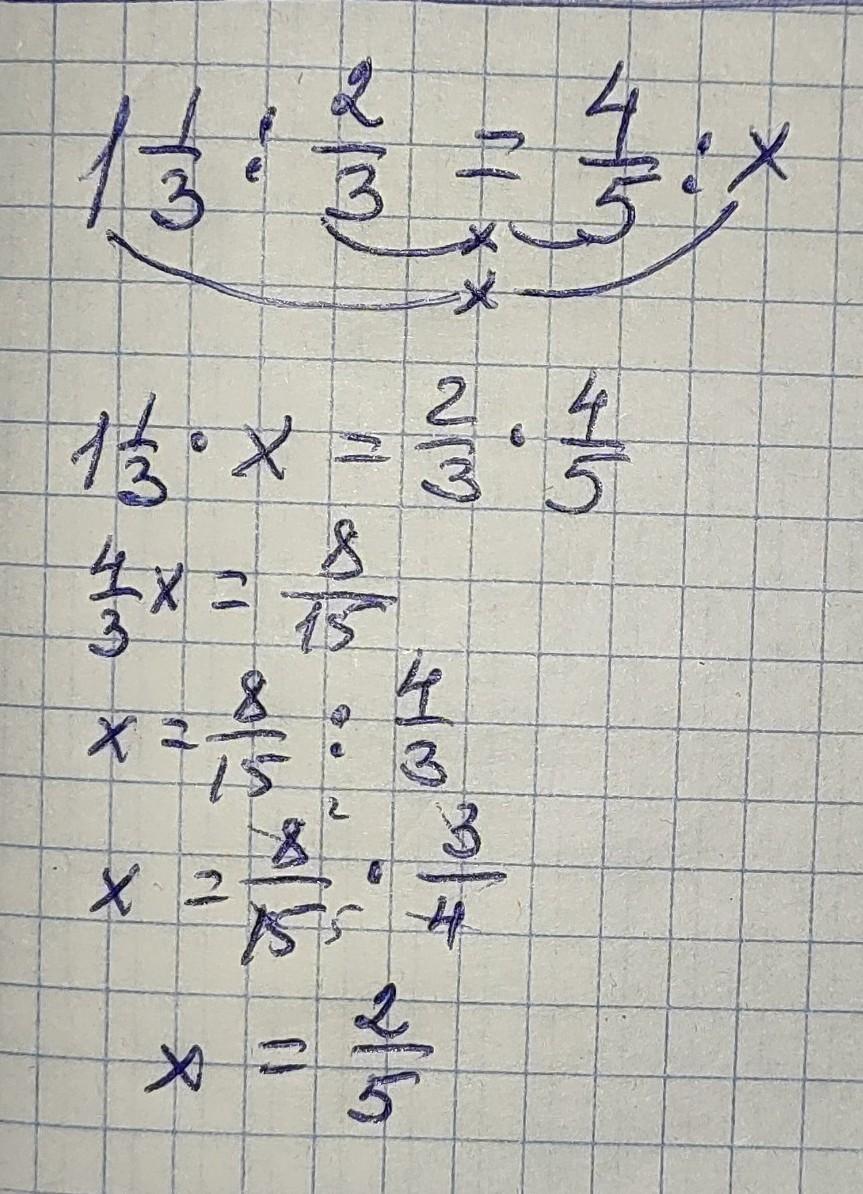 1 1/3 : 2/3 = 4/5 : x
x
x
1 1/3 · x = 2/3 · 4/5
4/3 x = 8/15
x = 8/15 : 4/3
x = 8 2/15 5 · 3/4
x = 2/5